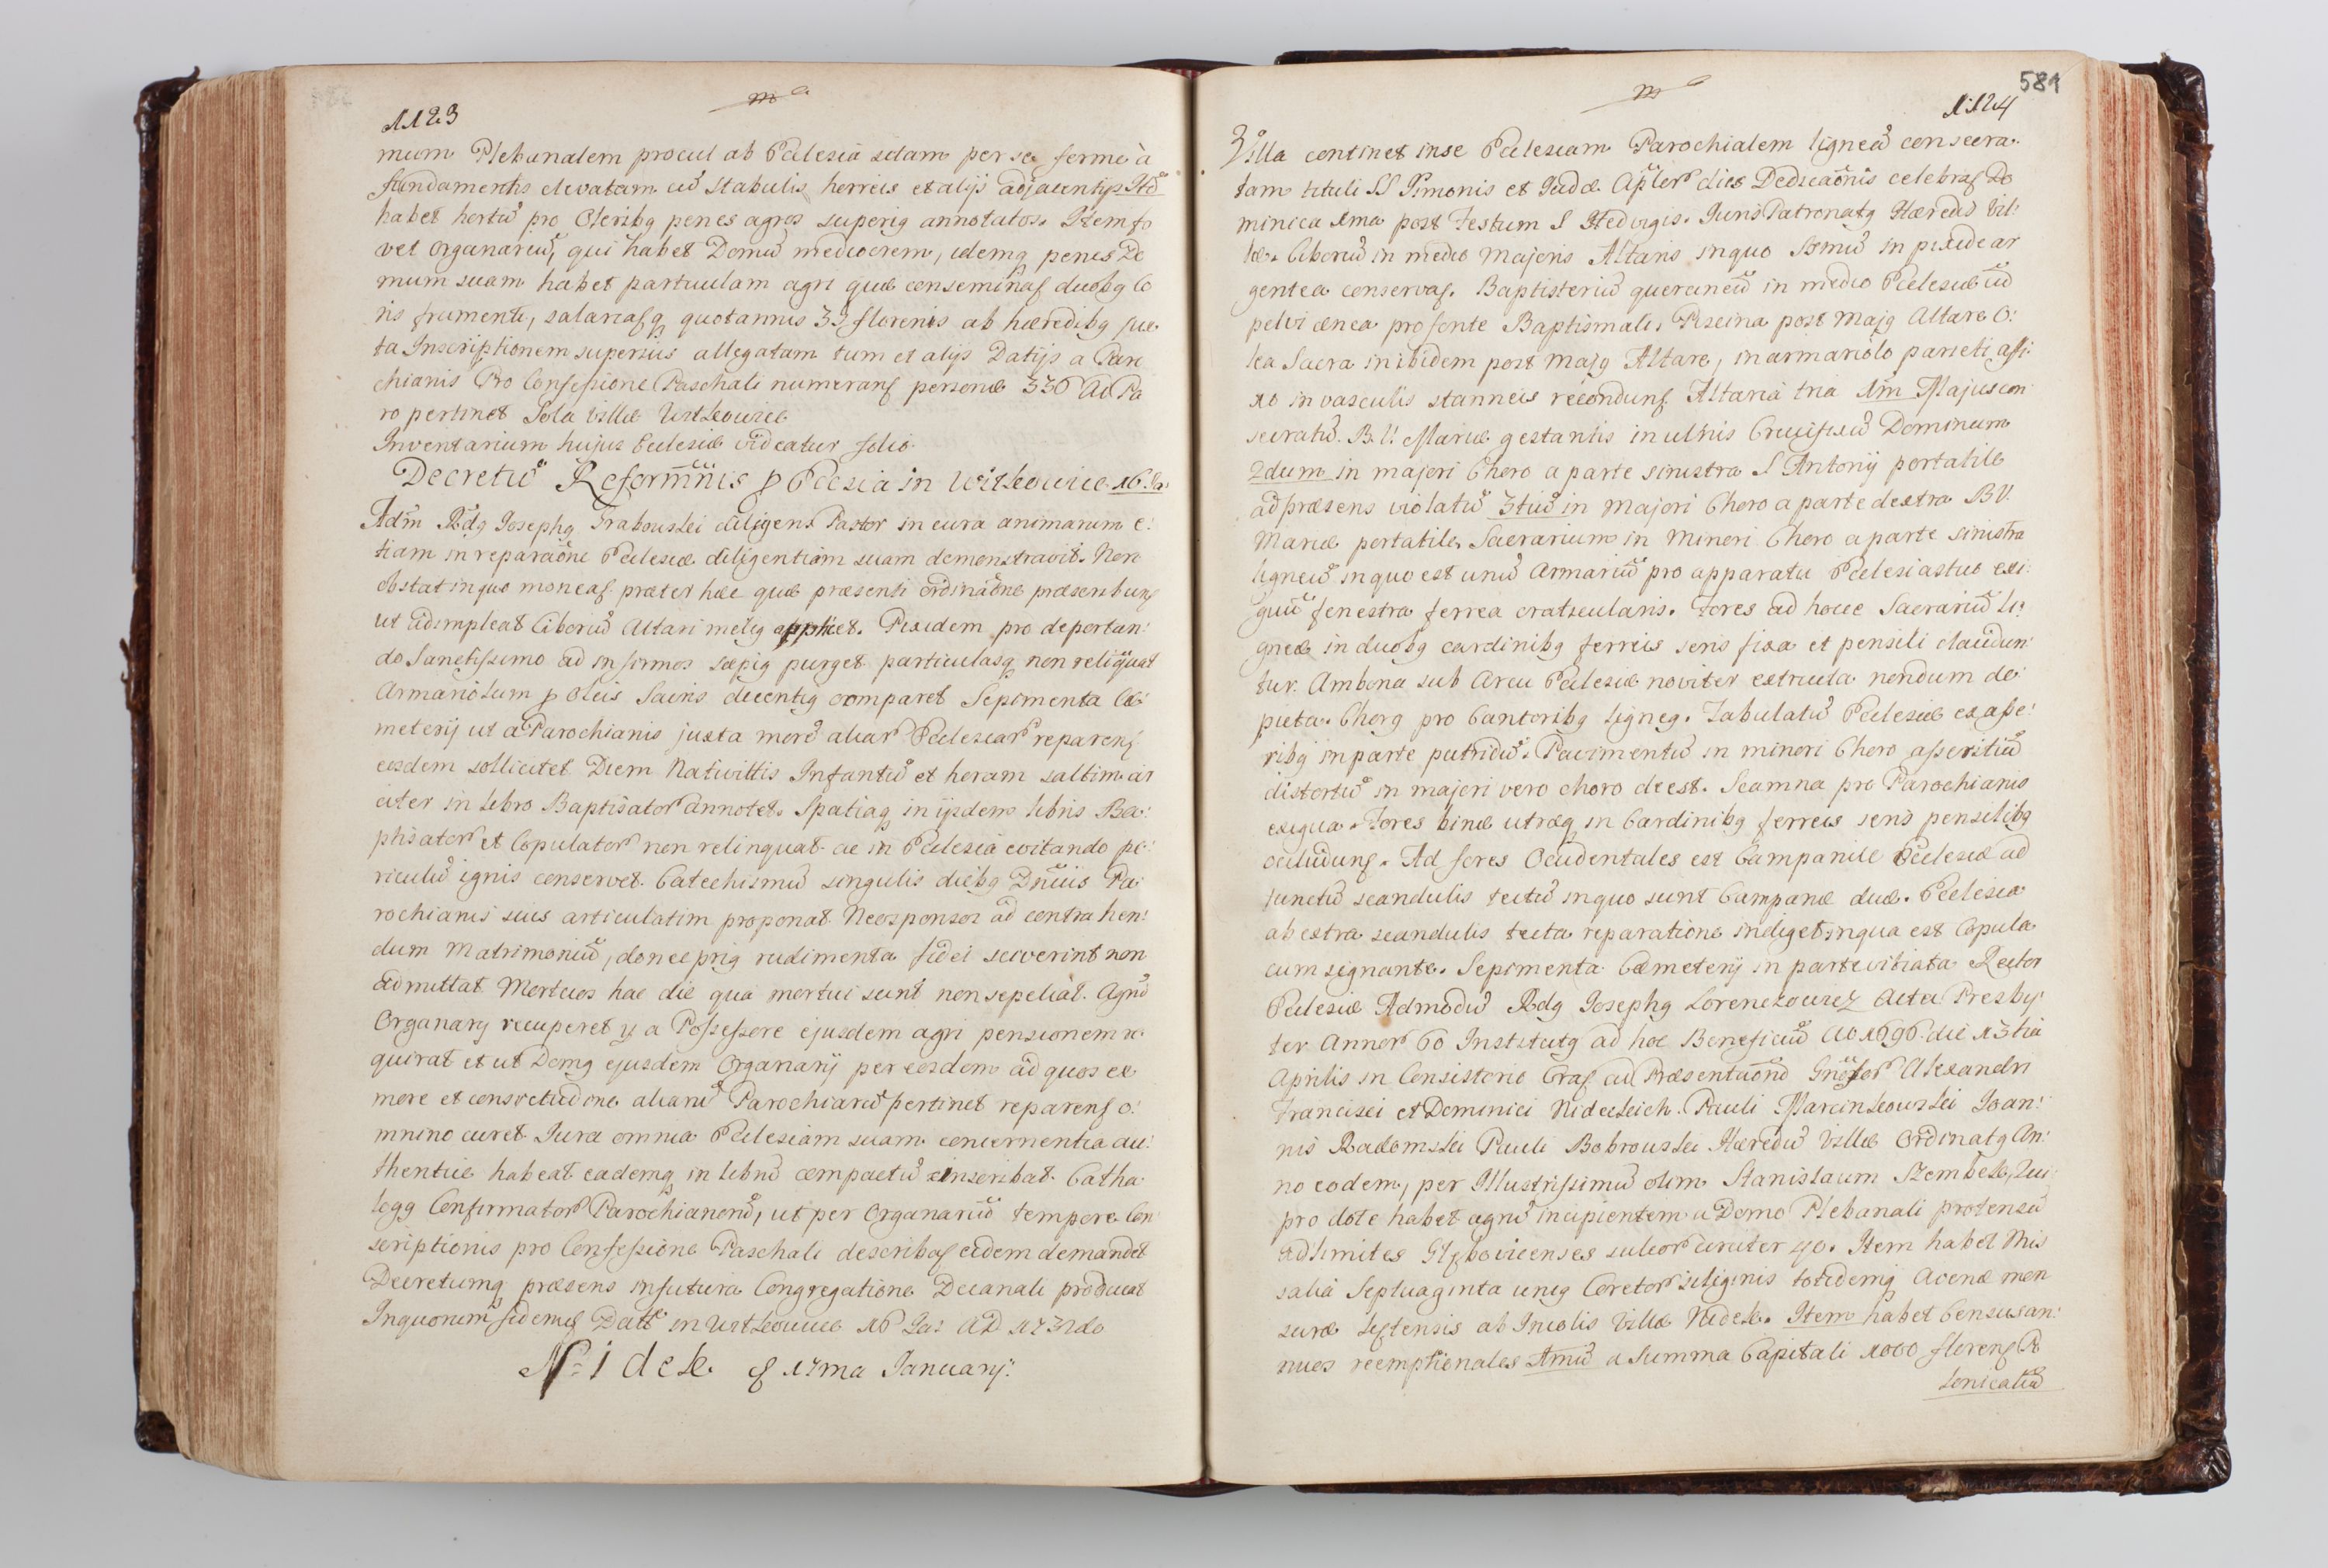 1123
mum Plebanalem procul ab Ecclesia sitam per se ferme à
fundamentis elevatam cũ stabulis, horreis et alijs adjacentijs Itẽ
habet hortũ pro Oleribq penes agros superiq annotatos. Item fo
vet Organariũ, qui habet Domũ mediocrem, idemq penes Do
mum suam habet particulam agri quæ conseminat duobq Co
ris frumenti, salariatq quotannis 32 florenis ab hæredibq jux
ta Inscriptionem superius allegatam tum et alijs Datijs a Paro
chianis Pro Confessione Paschali numerant personæ 336 Ad Pa
ro pertinet Sola villa Witkowice
Inventarium hujus Ecclesiæ videatur folio
Decretũ Reformñnis p Ecclesia in Witkowice 16 Ja:
Adm̃ Rdq Josephq Grabouski diligens Pastor in cura animarum e:
tiam in reparaõne Ecclesiæ diligentiam suam demonstravit. Non
obstat in quo moneat præter hæc quæ præsenti ordinaõne præscribunt
ut adimpleat Ciboriũ Altari meliq applicet. Pixidem pro deportan:
do Sanctissimo ad infirmos sæpiq purget particulasq non reliquat
Armariolum p Oleis Sacris decentiq comparet Sepimenta Cæ:
meterij ut a Parochianis juxta morẽ aliar Ecclesiar reparent
eosdem sollicitet Diem Nativittis Infantũ et horam saltim cir
citer in libro Baptisator annotet. Spatiaq in ijsdem libris Ba:
ptisator et Copulator non relinquat ac in Ecclesia evitando pe:
riculũ ignis conservet. Catechismũ singulis diebq Dnĩcis Pa:
rochianis suis articulatim proponat Neosponsos ad contra hen:
dum Matrimoniũ, donec priq rudimenta fidei sciverint non
admittat Mortuos hac die qua mortui sunt non sepeliat. Agrũ
Organarij recuperet y a Possessore ejusdem agri pensionem re
quirat et ut Domq ejusdem Organarij per eosdem ad quos ex
more et consvetudine aliarũ Parochiarũ pertinet reparent o:
mnino curet Jura omnia Ecclesiam suam concernentia au:
thentice habeat eademq in librũ compactũ inscribat. Catha
logq Confirmator Parochianorũ, ut per Organariũ tempore Con
scriptionis pro Confessione Paschali describat eidem demandet
Decretumq præsens in futura Congregatione Decanali producat
In quorum fidem Datt in Witkowice 16 Ja: AD 1731mo
Nidek 17ma Januarij:
581
1124
Villa continet in se Ecclesiam Parochialem ligneã consecra:
tam tituli SS Simonis et Judæ Aplor dies Dedicaõnis celebrat Do
minica 1ma post Festum S Hedvigis. Juris Patronatq Hæredũ Vil:
læ. Ciboriũ in medio Majoris Altaris in quo Ssmũ in pixide ar
gentea conservat. Baptisteriũ querceneũ in medio Ecclesiæ cũ
pelvi ænea pro fonte Baptismali, Piscina post Majq Altare O:
lea Sacra in ibidem post Majq Altare, in armariolo parieti affi:
xo in vasculis stanneis recondunt. Altaria tria 1m Majus con
secratũ. B. V. Mariæ gestantis in ulnis Crucifixũ Dominum
2dum in majori Choro a parte sinistra S Antonij portatile
ad præsens violatũ 3tiũ in Majori Choro a parte dextra BV.
Mariæ portatile, Sacrarium in Minori Choro a parte sinistra
ligneũ in quo est unũ armariũ pro apparatu Ecclesiastico exi:
guũ fenestra ferrea craticularis. Fores ad hocce Sacrariũ li:
gneæ in duobq cardinibq ferreis sera fixa et pensili claudun:
tur. Ambona sub Arcu Ecclesiæ noviter extructa nondum de
picta. Chorq pro Cantoribq ligneq. Tabulatũ Ecclesiæ ex asse:
ribq in parte putridũ. Pavimentũ in minori Choro asseritiũ
distortũ in majori vero choro deest. Scamna pro Parochianis
exigua. Fores binæ utræq in Cardinibq ferreis seris pensilibq
occludunt. Ad fores Occidentales est Campanile Ecclesiæ ad
junctũ scandulis tectũ in quo sunt Campanæ duæ. Ecclesia
ab extra scandulis tecta reparatione indiget in qua est Copula
cum signante. Sepimenta Cæmeterij in parte vitiata Rector
Ecclesiæ Admodũ Rdq Josephq Lorenckowicz Ætta Presby
ter Annor 60 Institutq ad hoc Beneficiũ Ao 1696 die 13tia
Aprilis in Consistorio Crac ad Præsentaõnẽ Gnosor Alexandri
Francisci et Dominici Nideckich. Pauli Marcinkouski Joan:
nis Radomski Pauli Bobrouski Hæredũ Villæ Ordinatq An:
no eodem, per Illustrissimũ olim Stanislaum Szembek, Qui
pro dote habet agrũ incipientem a Domo Plebanali protensũ
ad limites Głęboviecenses sulcor circiter 40. Item habet Mis
salia Septuaginta unq Coretor siliginis totidemq Avenæ men
suræ ab Incolis Villæ Nidek. Item habet Census an:
nuos reemptionales 1mũ a Summa Capitali 1000 floren P
lonicaliũ